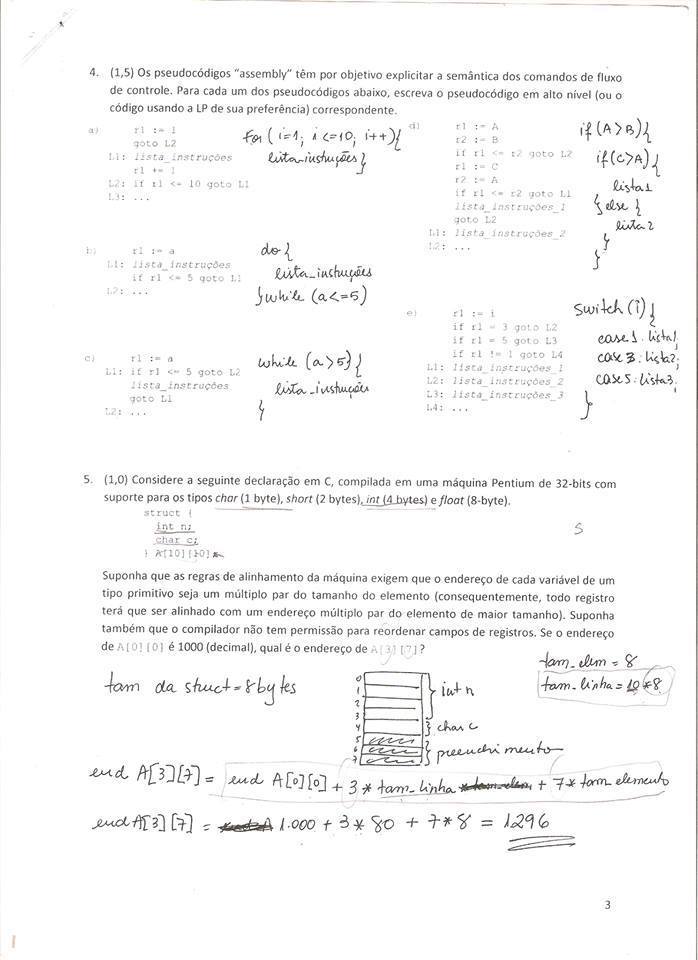 4. (1,5) Os pseudocódigos "assembly" têm por objetivo explicitar a semântica dos comandos de fluxo
de controle. Para cada um dos pseudocódigos abaixo, escreva o pseudocódigo em alto nível (ou o
código usando a LP de sua preferência) correspondente.
a) r1 := 1
goto L2
L1: lista_instruções
r1 += 1
L2: if r1 <= 10 goto L1
L3: ...
for (i=1; i<=10; i++){
lista_instruções}
b) r1 := a
L1: lista_instruções
if r1 <= 5 goto L1
L2: ...
do {
lista_instruções
} while (a<=5)
c) r1 := a
L1: if r1 <= 5 goto L2
lista_instruções
goto L1
L2: ...
while (a>5) {
lista_instrução
}
d) r1 := A
r2 := B
if r1 <= r2 goto L2
r1 := C
r2 := A
if r1 <= r2 goto L1
lista_instruções_1
goto L2
L1: lista_instruções_2
L2: ...
if (A>B){
if(C>A){
lista1
} else {
lista2
}
}
e) r1 := i
if r1 = 3 goto L2
if r1 = 5 goto L3
if r1 != 1 goto L4
L1: lista_instruções_1
L2: lista_instruções_2
L3: lista_instruções_3
L4: ...
switch (i) {
case 1: lista1;
case 3: lista2;
case 5: lista3;
}
5. (1,0) Considere a seguinte declaração em C, compilada em uma máquina Pentium de 32-bits com
suporte para os tipos char (1 byte), short (2 bytes), int (4 bytes) e float (8-byte).
struct {
int n;
char c;
} A[10][10];
S
Suponha que as regras de alinhamento da máquina exigem que o endereço de cada variável de um
tipo primitivo seja um múltiplo par do tamanho do elemento (consequentemente, todo registro
terá que ser alinhado com um endereço múltiplo par do elemento de maior tamanho). Suponha
também que o compilador não tem permissão para reordenar campos de registros. Se o endereço
de A[0][0] é 1000 (decimal), qual é o endereço de A[3][7]?
tam_elem = 8
tam_linha = 10*8
tam da struct = 8 bytes
0
1
2
3
4
5
6
7
int n
char c
preenchimento
end A[3][7] = end A[0][0] + 3 * tam_linha + 7 * tam elemento
end A[3][7] = 1.000 + 3*80 + 7*8 = 1296
3